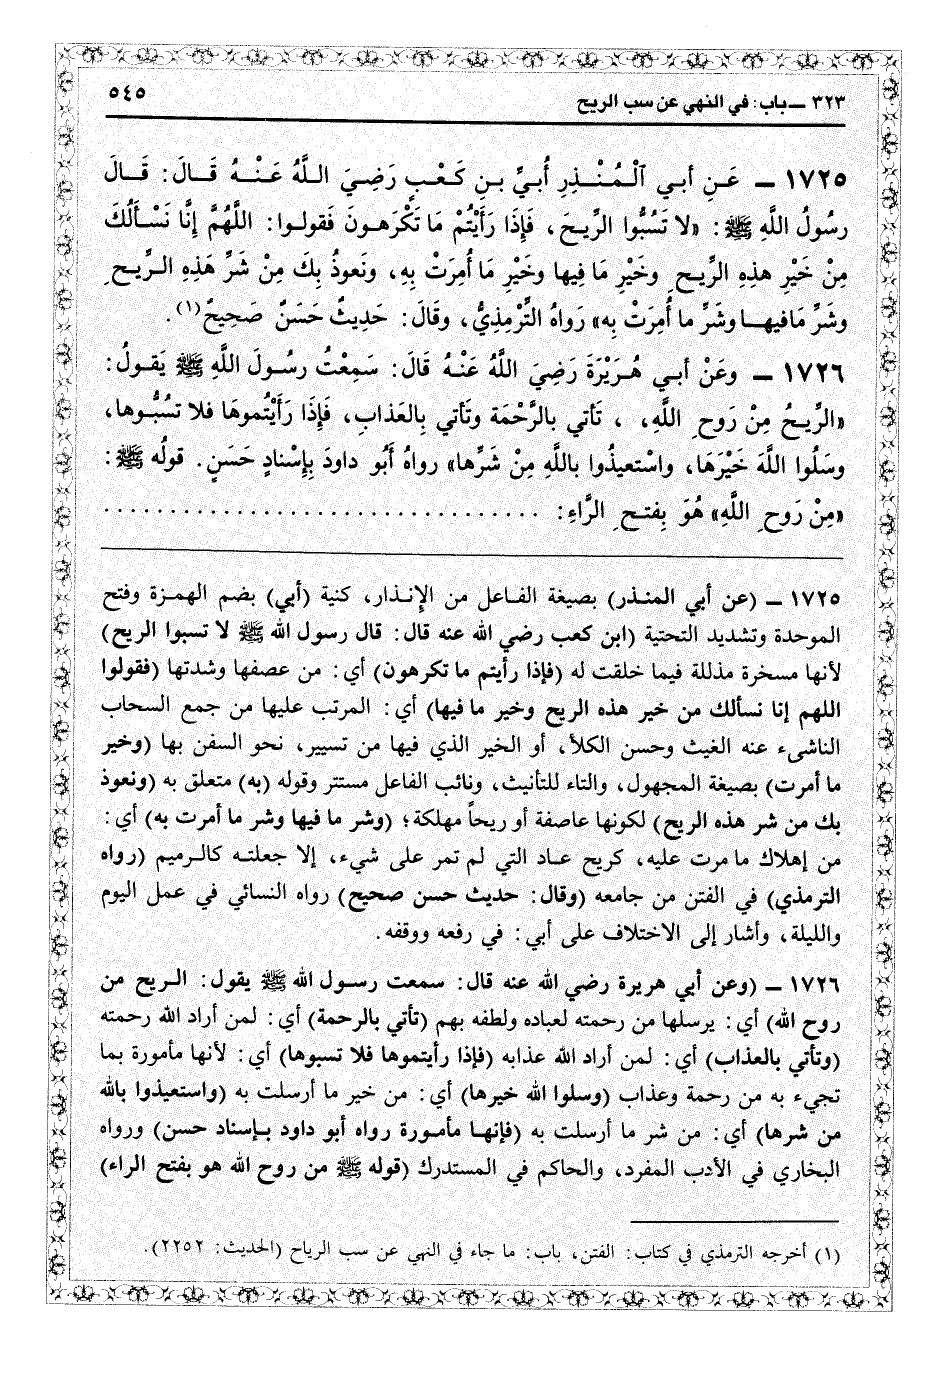 ٣٢٣ ــ باب: في النهي عن سب الريح ٥٤٥
١٧٢٥ ــ عَنِ أبي ٱلْمُنْذِرِ أُبيِّ بنِ كَعْبٍ رَضِيَ اللَّهُ عَنْهُ قَالَ: قَالَ
رسُولُ اللَّهِ ﷺ: «لا تَسُبُّوا الرِّيحَ، فَإِذا رَأَيْتُمْ مَا تَكْرَهونَ فَقولوا: اللَّهُمَّ إنَّا نَسْألُكَ
مِنْ خَيْرِ هذِهِ الرِّيحِ وخَيْرِ مَا فِيها وخَيْرِ مَا أُمِرَتْ بِهِ، ونَعوذُ بِكَ مِنْ شَرِّ هَذِهِ الرِّيحِ
وشَرِّ مَافيها وشَرِّ ما أُمِرَتْ بِهِ» رَواهُ التِّرْمِذِيُّ، وقَالَ: حَدِيثٌ حَسَنٌ صَحِيحٌ(١).
١٧٢٦ ــ وعَنْ أبي هُرَيْرَةَ رَضِيَ اللَّهُ عَنْهُ قَالَ: سَمِعْتُ رسُولَ اللَّهِ ﷺ يَقولُ:
«الرِّيحُ مِنْ رَوحِ اللَّهِ، ، تَأتي بالرَّحْمَةِ وتَأتي بِالعَذابِ، فَإِذَا رَأَيْتُموهَا فَلا تَسُبُّوها،
وسَلُوا اللَّهَ خَيْرَهَا، واسْتَعيذُوا باللَّهِ مِنْ شَرِّها» رواهُ أَبُو داودَ بِإِسْنادٍ حَسَنٍ. قولُه ﷺ:
«مِنْ رَوحِ اللَّهِ» هُوَ بِفتحِ الرَّاءِ: . . . . . . . . . . . . . . . . . . . . . . . . . . . . . . . . .
١٧٢٥ ــ (عن أبي المنذر) بصيغة الفاعل من الإنذار، كنية (أبي) بضم الهمزة وفتح
الموحدة وتشديد التحتية (ابن كعب رضي الله عنه قال: قال رسول الله ﷺ لا تسبوا الريح)
لأنها مسخرة مذللة فيما خلقت له (فإذا رأيتم ما تكرهون) أي: من عصفها وشدتها (فقولوا
اللهم إنا نسألك من خير هذه الريح وخير ما فيها) أي: المرتب عليها من جمع السحاب
الناشىء عنه الغيث وحسن الكلأ، أو الخير الذي فيها من تسيير، نحو السفن بها (وخير
ما أمرت) بصيغة المجهول، والتاء للتأنيث، ونائب الفاعل مستتر وقوله (به) متعلق به (ونعوذ
بك من شر هذه الريح) لكونها عاصفة أو ريحاً مهلكة؛ (وشر ما فيها وشر ما أمرت به) أي:
من إهلاك ما مرت عليه، كريح عاد التي لم تمر على شيء، إلا جعلته كالرميم (رواه
الترمذي) في الفتن من جامعه (وقال: حديث حسن صحيح) رواه النسائي في عمل اليوم
والليلة، وأشار إلى الاختلاف على أبي: في رفعه ووقفه.
١٧٢٦ ــ (وعن أبي هريرة رضي الله عنه قال: سمعت رسول الله ﷺ يقول: الريح من
روح الله) أي: يرسلها من رحمته لعباده ولطفه بهم (تأتي بالرحمة) أي: لمن أراد الله رحمته
(وتأتي بالعذاب) أي: لمن أراد الله عذابه (فإذا رأيتموها فلا تسبوها) أي: لأنها مأمورة بما
تجيء به من رحمة وعذاب (وسلوا الله خيرها) أي: من خير ما أرسلت به (واستعيذوا بالله
من شرها) أي: من شر ما أرسلت به (فإنها مأمورة رواه أبو داود بإسناد حسن) ورواه
البخاري في الأدب المفرد، والحاكم في المستدرك (قوله ﷺ من روح الله هو بفتح الراء)
(١) أخرجه الترمذي في كتاب: الفتن، باب: ما جاء في النهي عن سب الرياح (الحديث: ٢٢٥٢).